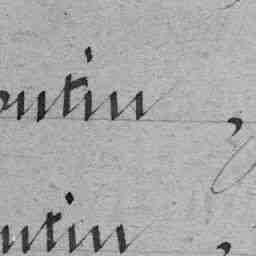 outin ,
utin ,